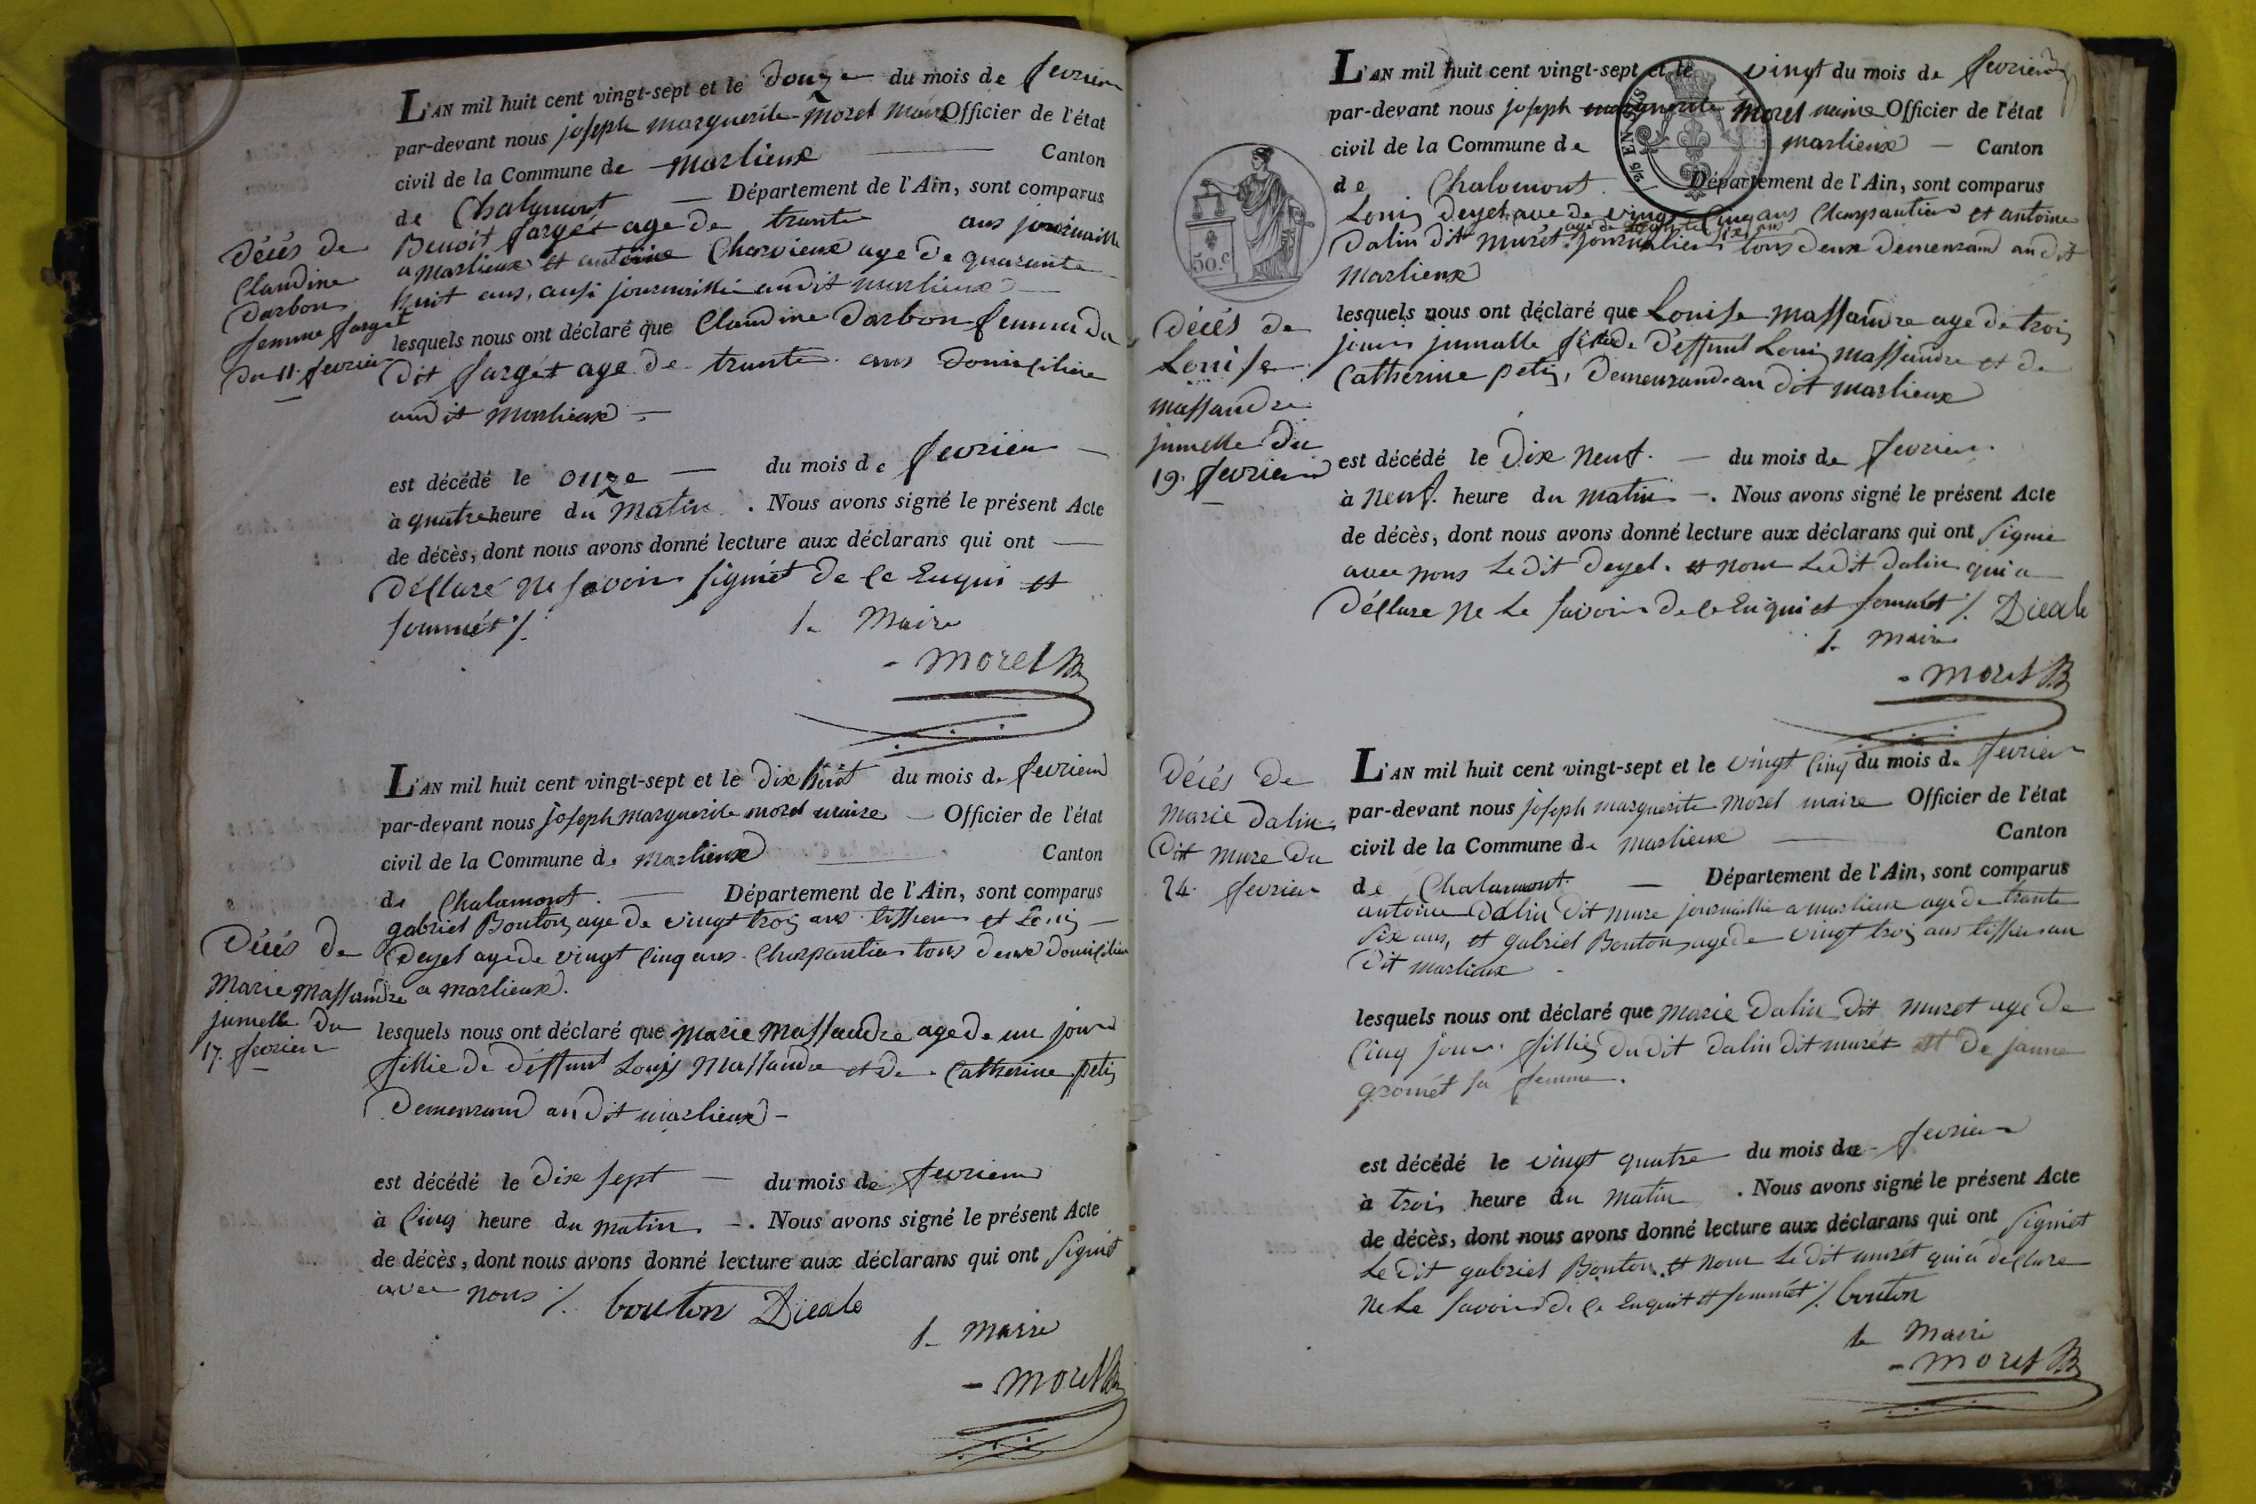 L'AN mil huit cent vingt-sept et le Douze du mois de fevrier
par-devant nous joseph marguerite Morel Maire Officier de l'état
civil de la Commune de Marlieux Canton
de Chalamont Département de l'Ain, sont comparus
Benoit farget age de trante ans journaillie
a Marlieux et antoine Charvieux age de quarante
huit ans, ausi journaillié audit marlieux
lesquels nous ont déclaré que Claudine Darbon femme du
dit fargét age de trante ans domiciliée
audit Marlieux
est décédé le onze du mois de fevrier
à quatre heure du Matin. Nous avons signé le présent Acte
de décès, dont nous avons donné lecture aux déclarans qui ont
déclaré ne savoir signiét de ce Enquis et
sommét ./.
le Maire
Morel
Décés de
Claudine
Darbon
femme farget
du 11. fevrier
L'AN mil huit cent vingt-sept et le dix huit du mois de fevrier
par-devant nous joseph marguerite morel maire Officier de l'état
civil de la Commune de Marlieux Canton
de Chalamont. Département de l'Ain, sont comparus
gabriel Bouton age de vingt trois ans tissier et Louis
Deyel age de vingt Cinq ans. Charpantier tous deux domicilier
a marlieux.
lesquels nous ont déclaré que marie Massandre age de un jour
fillie de déffunt Louis Massandre et de Catherine petis
Demeurand audit marlieux
est décédé le dix sept du mois de fevrier
à Cinq heure du matin. Nous avons signé le présent Acte
de décès, dont nous avons donné lecture aux déclarans qui ont signiét
avec nous ./. bouton Dieale
le Maire
Morel
Décés de
Marie Massandre
jumelle du
17. fevrier
L'AN mil huit cent vingt-sept et le vingt du mois de fevrier
par-devant nous joseph marguerite Morel maire Officier de l'état
civil de la Commune de marlieux Canton
de Chalamont. Département de l'Ain, sont comparus
Louis Deyel age de vingt Cinq ans Charpantier et antoine
age de trante six ans
Dalin dit Murét journalier tous deux demeurand audit
Marlieux
lesquels nous ont déclaré que Louise Massandre age de trois
jours jumelle fille de déffunt Louis Massandre et de
Catherine petis, Demeurand au dit marlieux
est décédé le Dix Neuf. du mois de fevrier
à Neuf. heure du matin. Nous avons signé le présent Acte
de décès, dont nous avons donné lecture aux déclarans qui ont signié
avec nous Ledit Deyel. et non Ledit dalin qui a
déclare Ne Le savoir de ce Enquis et sommét ./. Dieale
le Maire
Morel
50.c
25 EN SUS
Décés de
Louise
massandre
jumelle Du
19. fevrier
L'AN mil huit cent vingt-sept et le vingt Cinq du mois de fevrier
par-devant nous joseph marguerite Morel maire Officier de l'état
civil de la Commune de Marlieux Canton
de Chalamont. Département de l'Ain, sont comparus
antoine Dalin Dit mure journaillie a marlieux age de trante
six ans, et gabriel Bouton age de vingt trois ans tissier au
dit marlieux
lesquels nous ont déclaré que Marie Dalin Dit Muret age de
Cinq jour. fillie du dit Dalin dit murét et de janne
gromét sa femme.
est décédé le vingt quatre du mois de fevrier
à trois heure du matin. Nous avons signé le présent Acte
de décès, dont nous avons donné lecture aux déclarans qui ont signiét
Le Dit gabriel Bouton et non Le dit murét qui a déclare
Ne Le savoir de ce Enquit et sommét ./. bouton
le Maire
Morel
Décés De
Marie Dalin
Dit Mure Du
24. fevrier